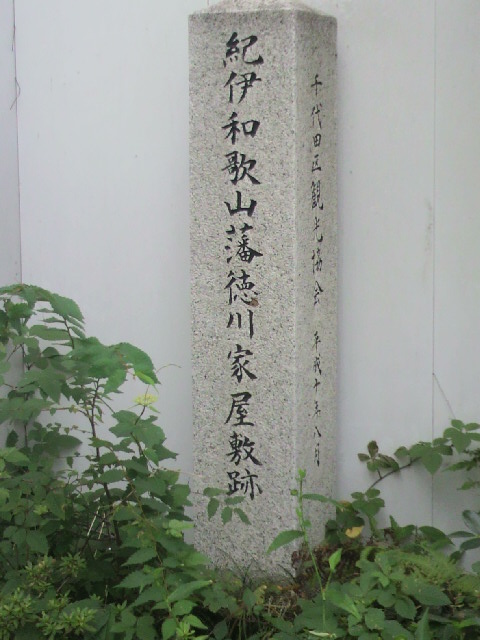 紀伊和歌山藩徳川家屋敷跡
千代田区観光協会 平成十年八月